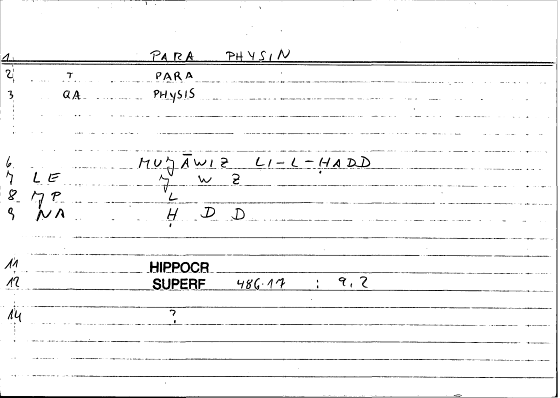 1 PARA PHYSIN
2 T PARA
3 QA PHYSIS
6 MUǦĀWIZ LI-L-ḤADD
7 LE Ǧ W Z
8 ǦP L
9 NA Ḥ D D
11 HIPPOCR
12 SUPERF 486.17 : 9,2
14 ?